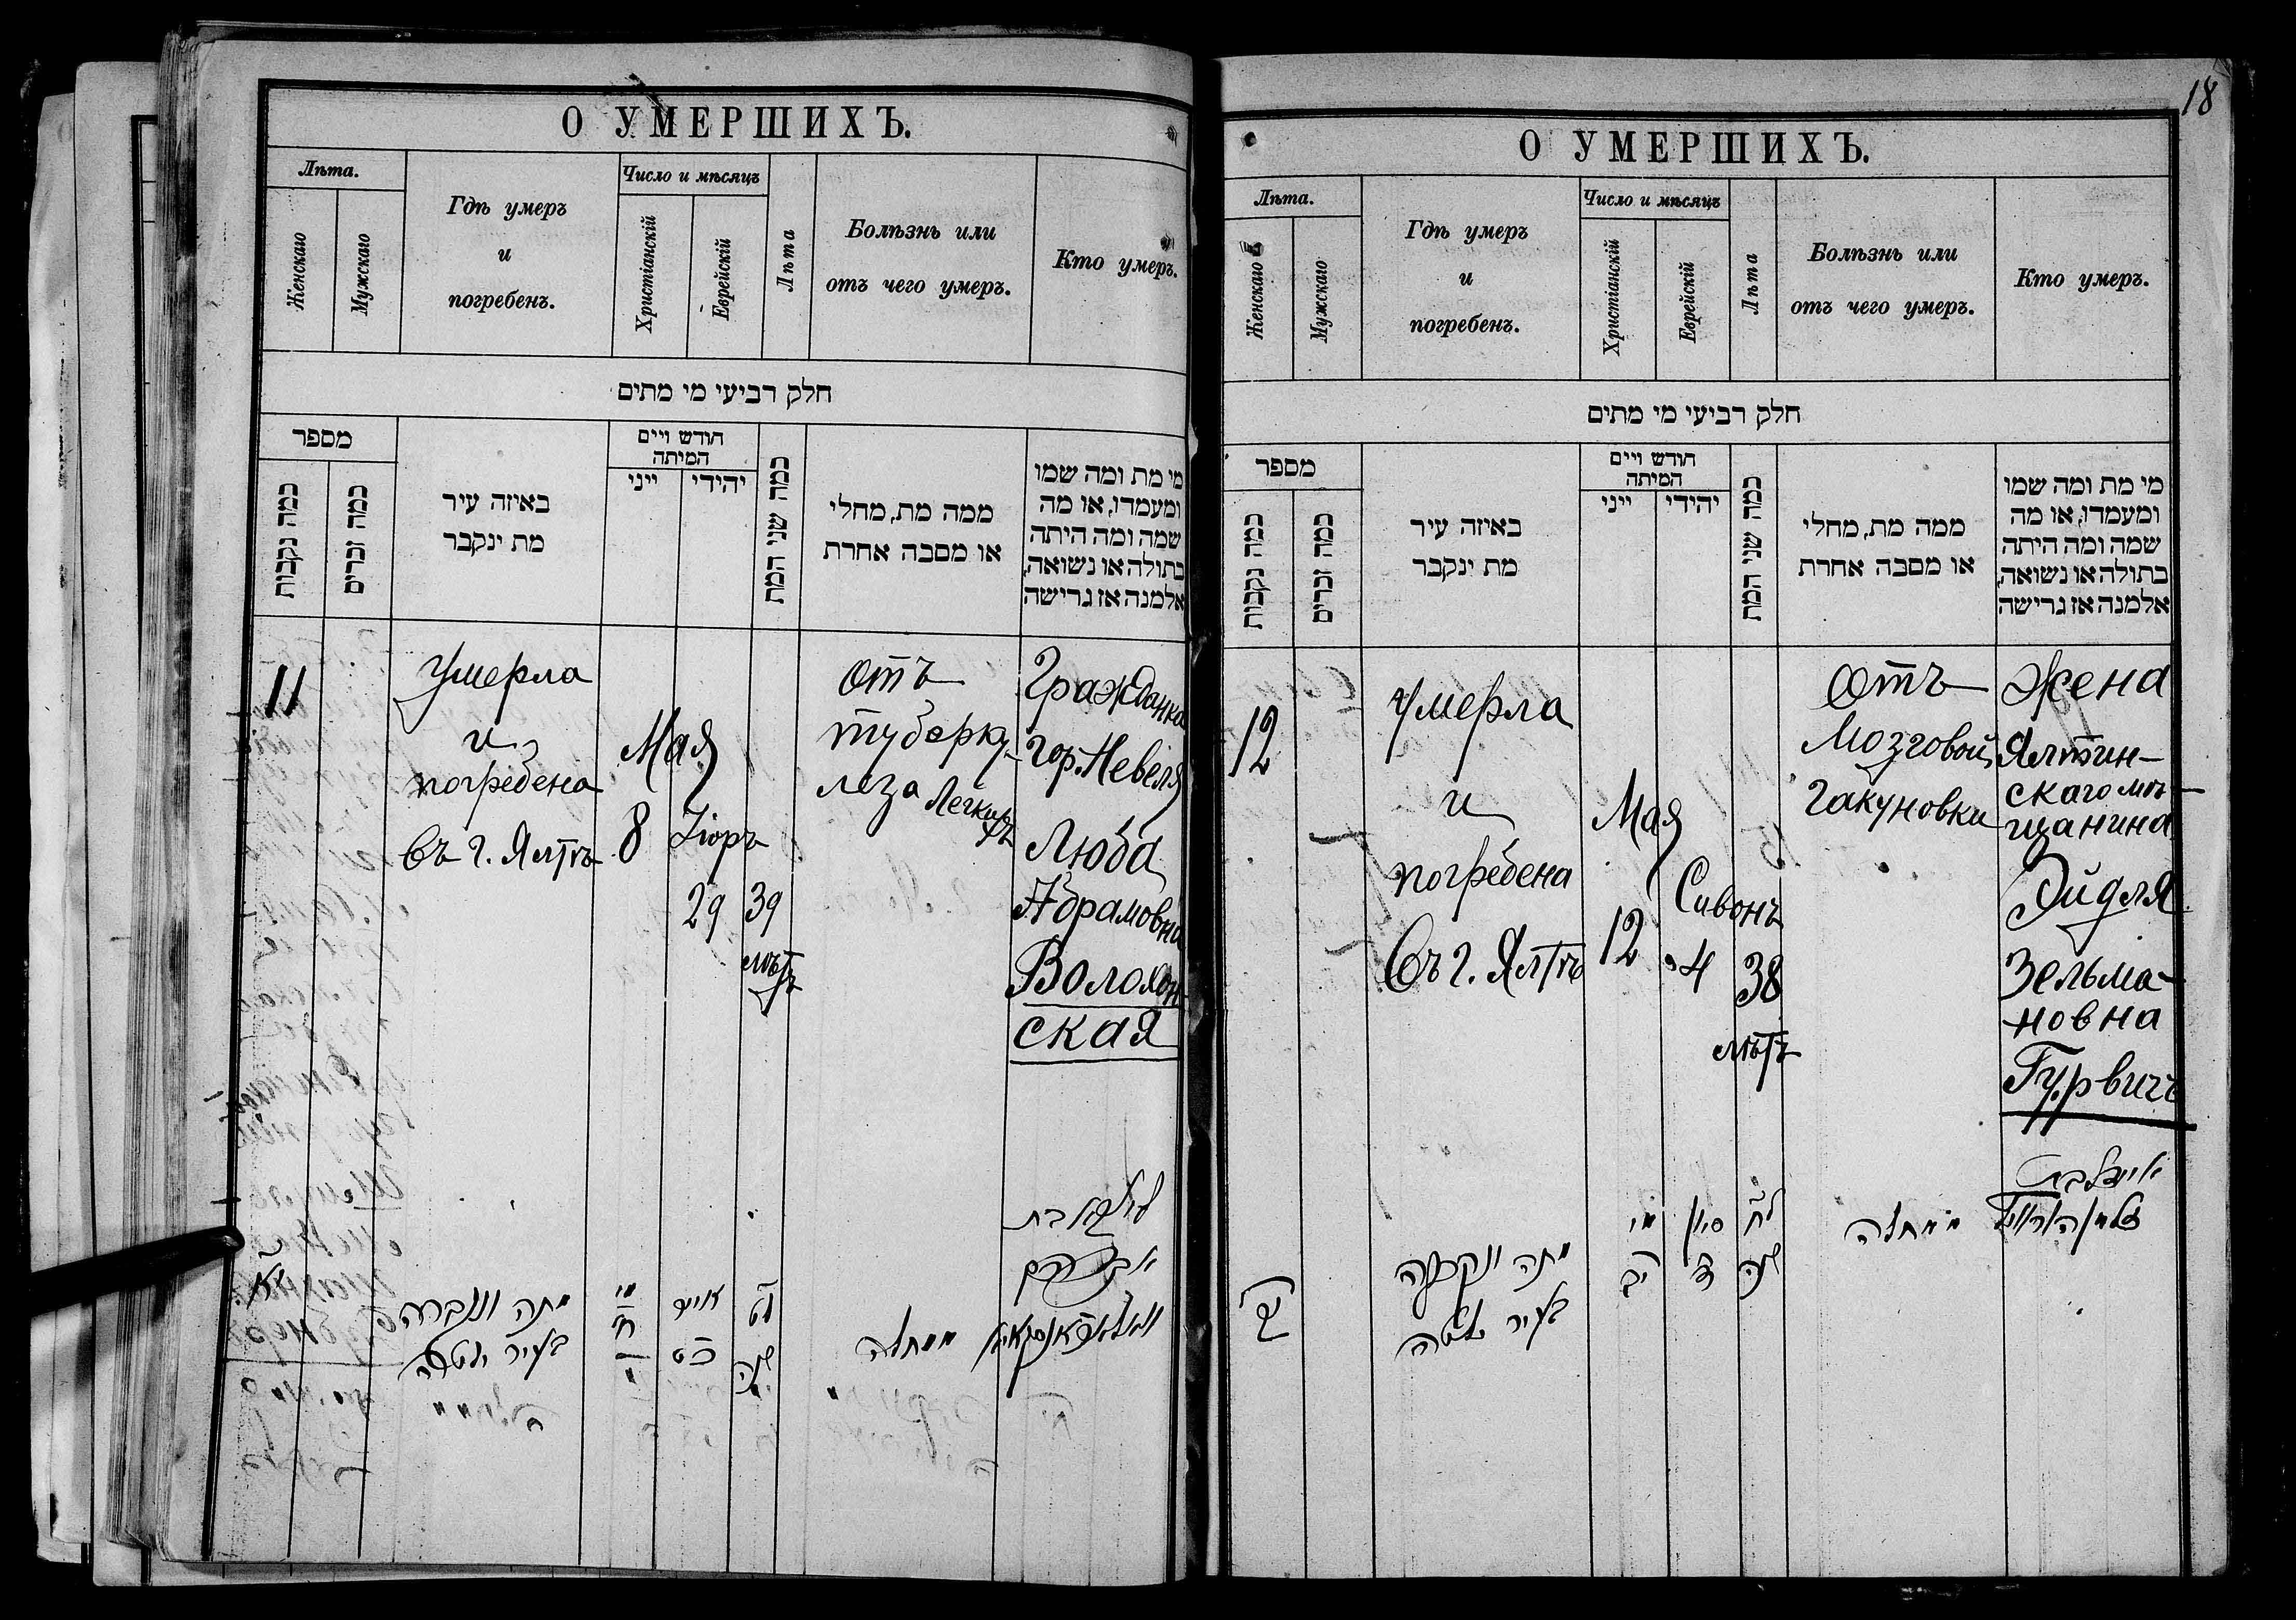 О УМЕРШИХЪ.
Лѣта.
Женскаго
Мужскаго
Гдѣ умеръ
и
погребенъ.
Число и мѣсяцъ
Христіанскій
Еврейскій
Лѣта
Болѣзнь или
отъ чего умеръ.
Кто умеръ.
חלק רביעי מי מתים
מספר
כמה נקבות
כמה זכרים
באיזה עיר
מת ינקבר
חודש ויים
המיתה
ייני
יהידי
כמה שני המת
ממה מת, מחלי
או מסבה אחרת
מי מת ומה שמו
ומעמדו, או מה
שמה ומה היתה
בתולה או נשואה,
אלמנה אז גרישה
11
умерла
и
погребена
въ г. Ялтѣ
Мая
8
Іюръ
29
39
лѣтъ
отъ
туберку-
леза Легкихъ
Гражданка
гор. Невеля
Люба
Абрамовна
Волохон-
ская
יא
מתה ונקברה
בעיר יאלטה
מיי
ח
אייר
כט
לט
שנה
ממחלה
18
О УМЕРШИХЪ.
Лѣта.
Женскаго
Мужскаго
Гдѣ умеръ
и
погребенъ.
Число и мѣсяцъ
Христіанскій
Еврейскій
Лѣта
Болѣзнь или
отъ чего умеръ.
Кто умеръ.
חלק רביעי מי מתים
מספר
כמה נקבות
כמה זכרים
באיזה עיר
מת ינקבר
חודש ויים
המיתה
ייני
יהידי
כמה שני המת
ממה מת, מחלי
או מסבה אחרת
מי מת ומה שמו
ומעמדו, או מה
שמה ומה היתה
בתולה או נשואה,
אלמנה אז גרישה
12
умерла
и
погребена
Въ г. Ялтѣ
Мая
12
Сивонъ
4
38
лѣтъ
отъ
Мозговой
Гакуновки
Жена
Ялтин-
скаго мѣ-
щанина
Эйдля
Зельма-
новна
Гурвичъ
יב
מתה ונקברה
בעיר יאלטה
מיי
יב
סיון
ד
לח
שנה
ממחלה